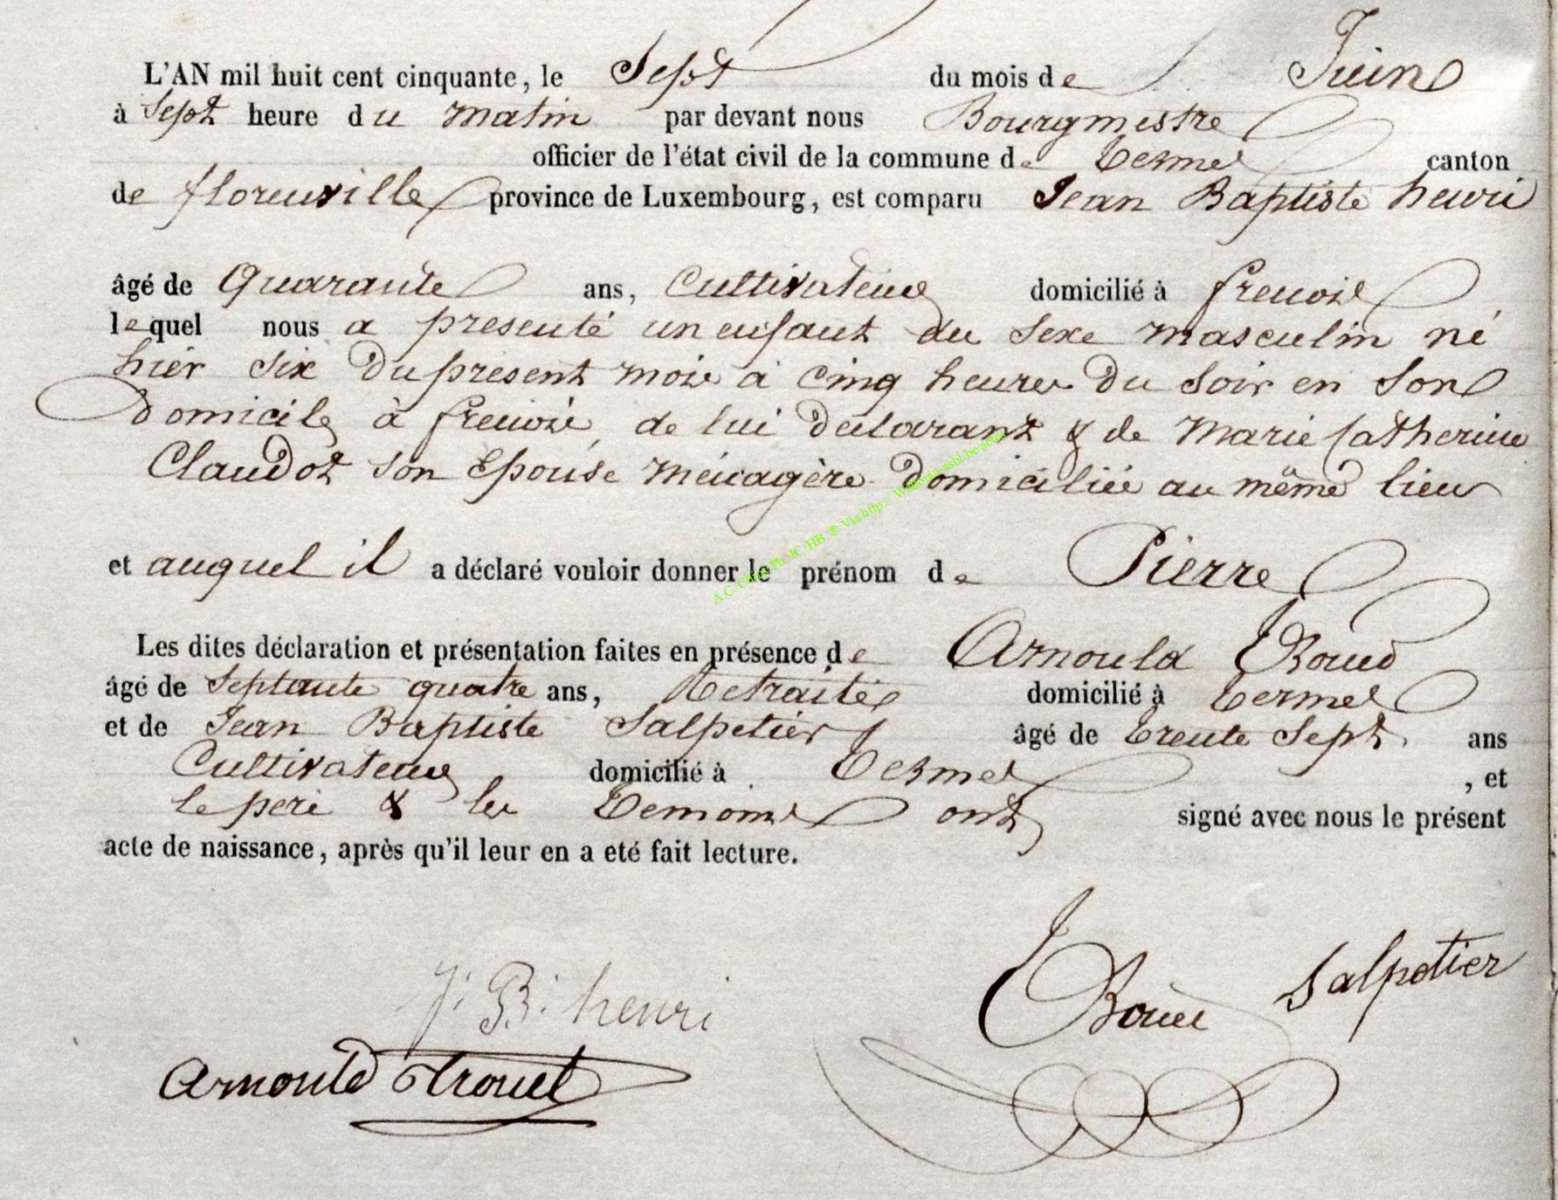 L'AN mil huit cent cinquante, le Sept du mois de Juin
à Sept heure du matin par devant nous Bourgmestre
officier de l'état civil de la commune de Termes canton
de florenville province de Luxembourg, est comparu Jean Baptiste henri
âgé de Quarante ans, Cultivateur domicilié à frenois
lequel nous a presenté un enfant du sexe masculin né
hier six du présent mois à cinq heures du soir en son
domicile à frenois, de lui déclarant & de Marie Catherine
Claudot son Epouse ménagère domiciliée au même lieu
et auquel il a déclaré vouloir donner le prénom de Pierre
Les dites déclaration et présentation faites en présence de Arnould
âgé de Septante quatre ans, Retraité domicilié à Termes
et de Jean Baptiste Salpetier âgé de trente Sept ans
Cultivateur domicilié à Termes , et
le pere & les temoins ont signé avec nous le présent
acte de naissance, après qu'il leur en a eté fait lecture.
J. B. henri
Salpetier
Arnould